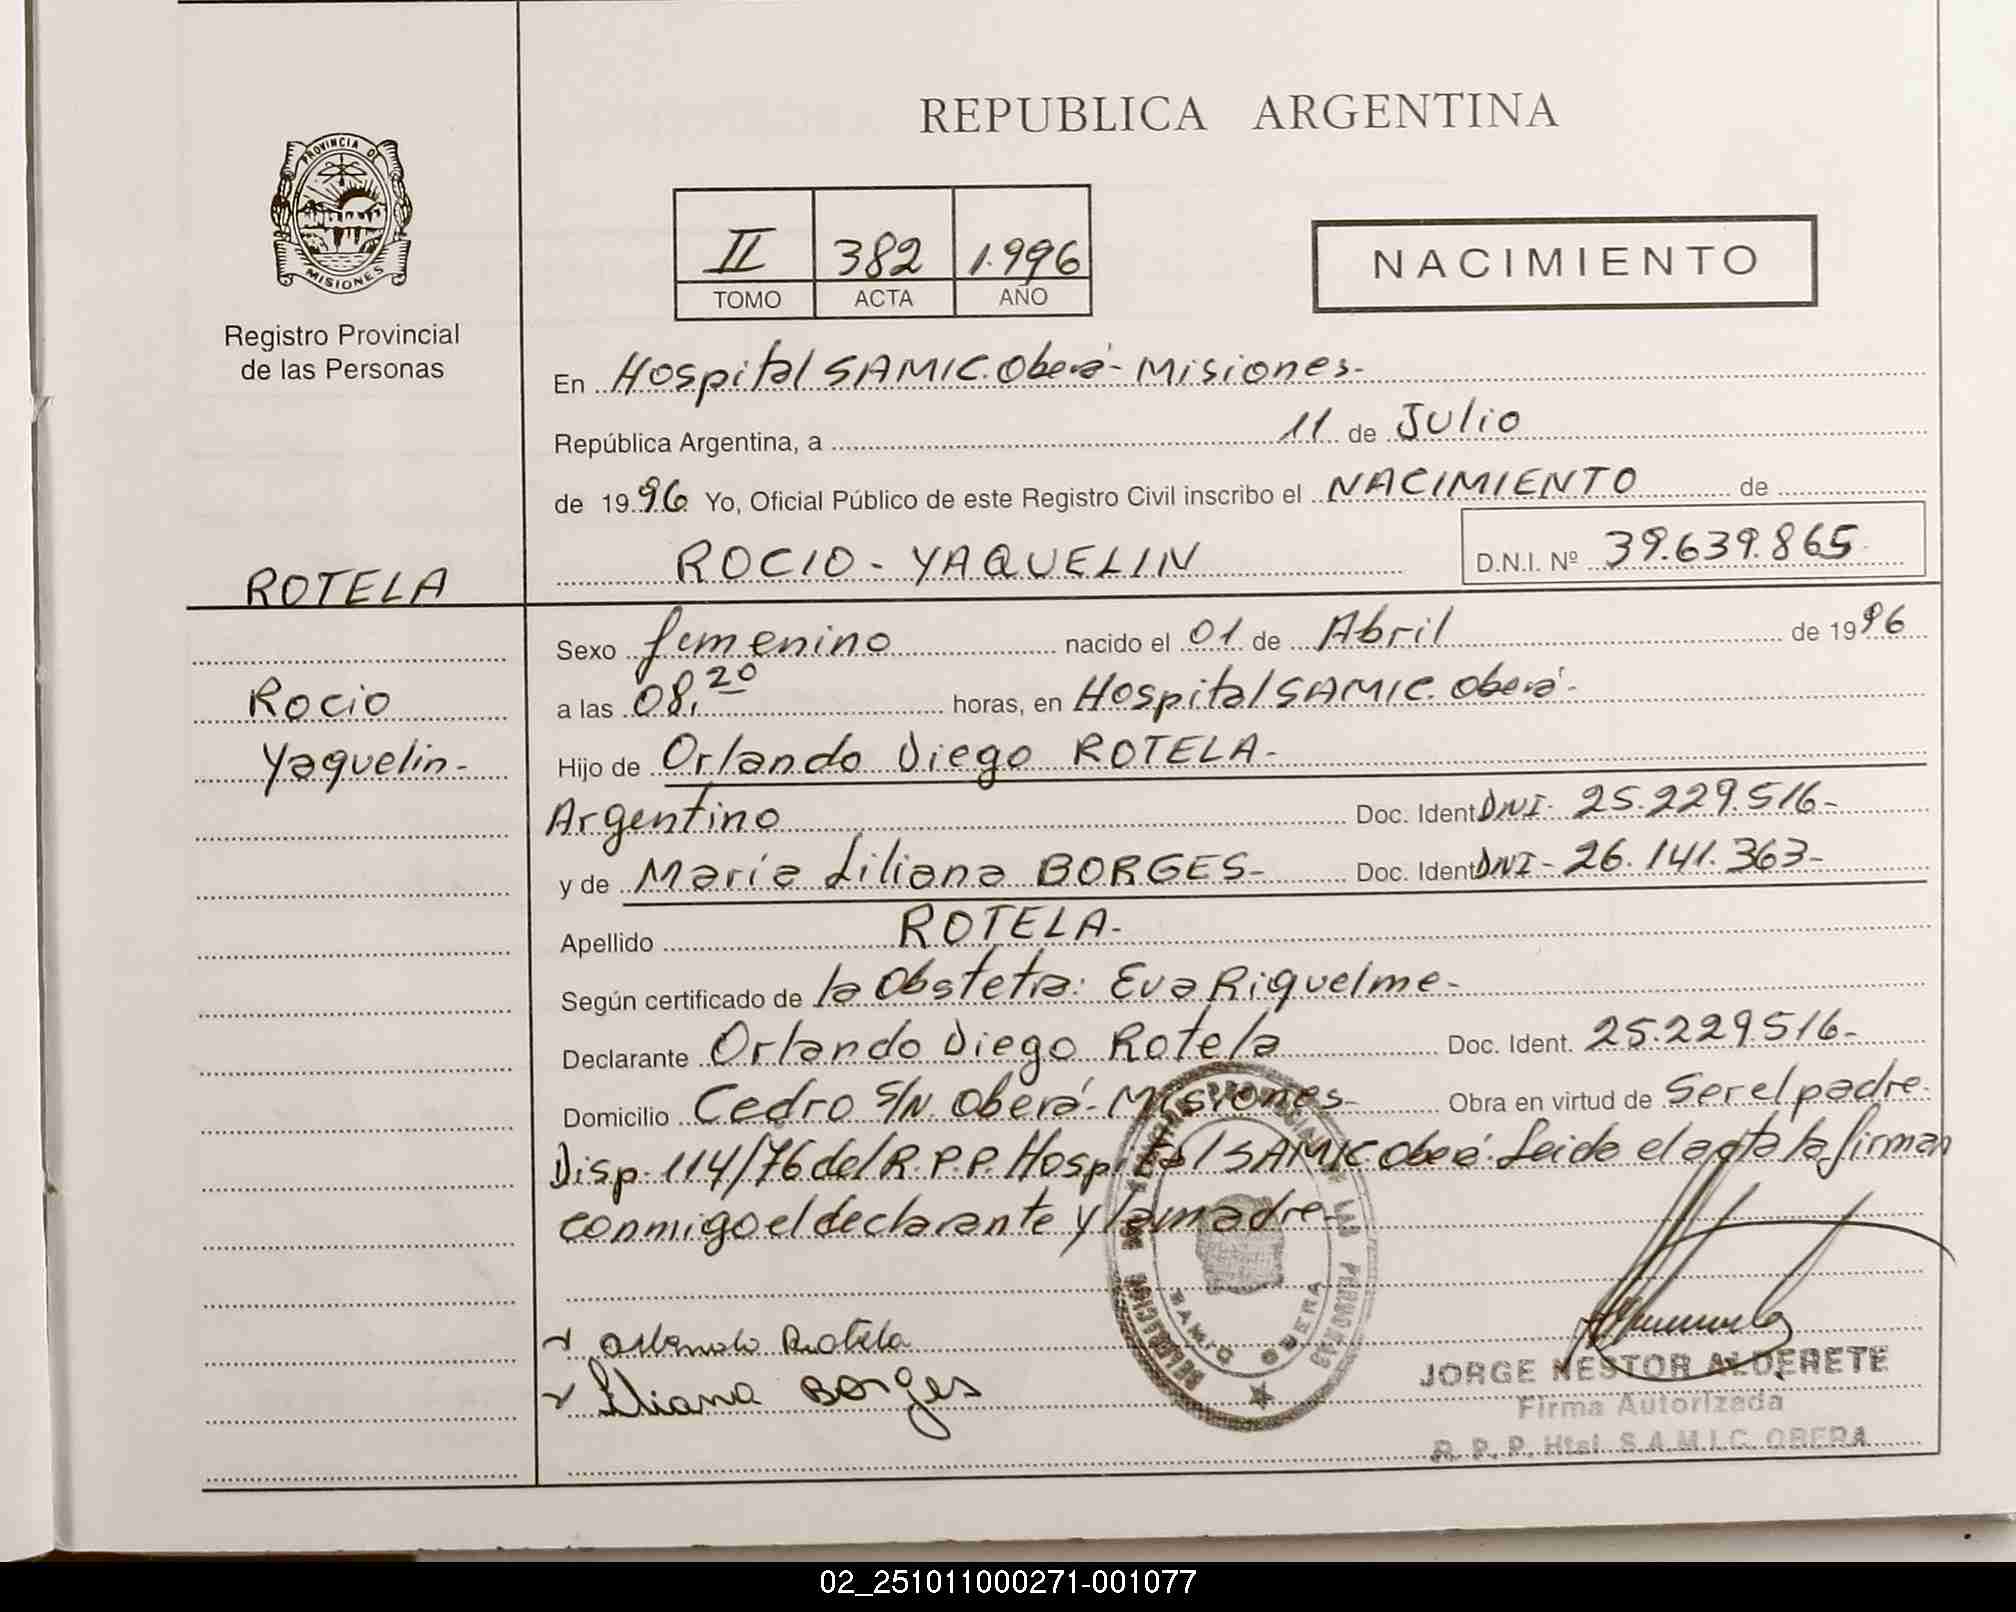 REPUBLICA ARGENTINA
PROVINCIA DE
MISIONES
Registro Provincial
de las Personas
II 382 1.996
TOMO ACTA AÑO
NACIMIENTO
En Hospital SAMIC. Oberá - Misiones-
República Argentina, a 11 de Julio
de 1996 Yo, Oficial Público de este Registro Civil inscribo el NACIMIENTO de
ROCIO - YAQUELIN D.N.I. Nº 39.639.865
ROTELA
Rocio
Yaquelin-
Sexo femenino nacido el 01 de Abril de 1996
a las 08,20 horas, en Hospital SAMIC. Oberá-
Hijo de Orlando Diego ROTELA-
Argentino Doc. Ident DNI- 25.229.516-
y de María Liliana BORGES- Doc. Ident DNI- 26.141.363-
Apellido ROTELA-
Según certificado de la Obstetra: Eva Riquelme-
Declarante Orlando Diego Rotela Doc. Ident. 25.229.516-
Domicilio Cedro S/N. Oberá- Misiones- Obra en virtud de Ser el padre-
Disp. 114/76 del R.P.P. Hospital SAMIC Oberá- Leida el acta la firman
conmigo el declarante y la madre-
Rotela
Liliana Borges
SAMIC OBERA
JORGE NESTOR ALDERETE
Firma Autorizada
R. P. P. Htal. S.A.M.I.C. OBERA
02_251011000271-001077